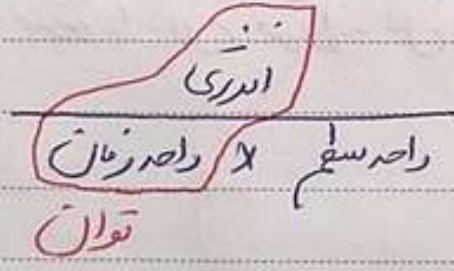 انرژی
واحد سطح × واحد زمان
توان